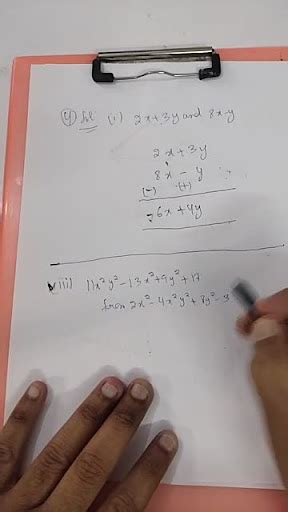 4) Sol (i) 2x+3y and 8x-y
2x+3y
8x - y
(-) (+)
-6x+4y
viii) 11x²y²-13x²+9y²+17
from 2x²-4x²y²+8y²-3